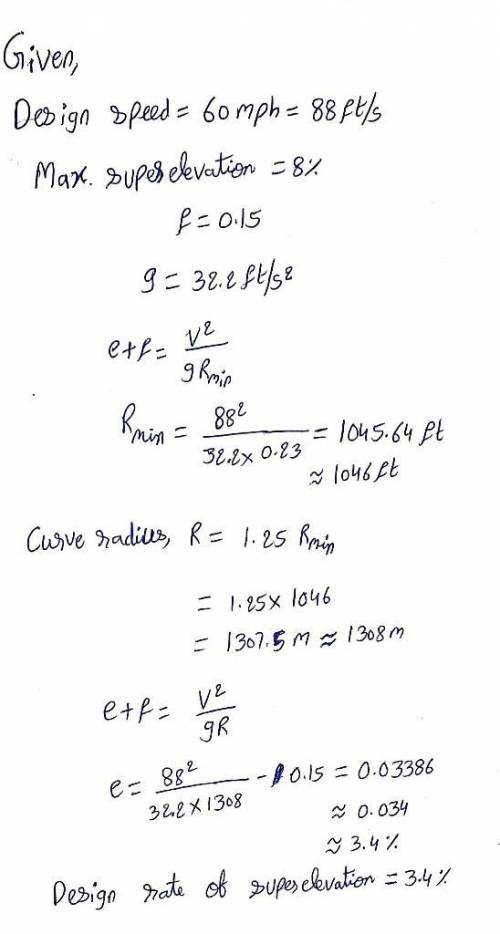 Given,
Design speed = 60 mph = 88 ft/s
Max. superelevation = 8%
f = 0.15
g = 32.2 ft/s²
e+f = V²/gRmin
Rmin = 88²/32.2 x 0.23 = 1045.64 ft
≈ 1046 ft
Curve radius, R = 1.25 Rmin
= 1.25 x 1046
= 1307.5 m ≈ 1308 m
e+f = V²/gR
e = 88²/32.2 x 1308 - 0.15 = 0.03386
≈ 0.034
≈ 3.4%
Design rate of superelevation = 3.4%